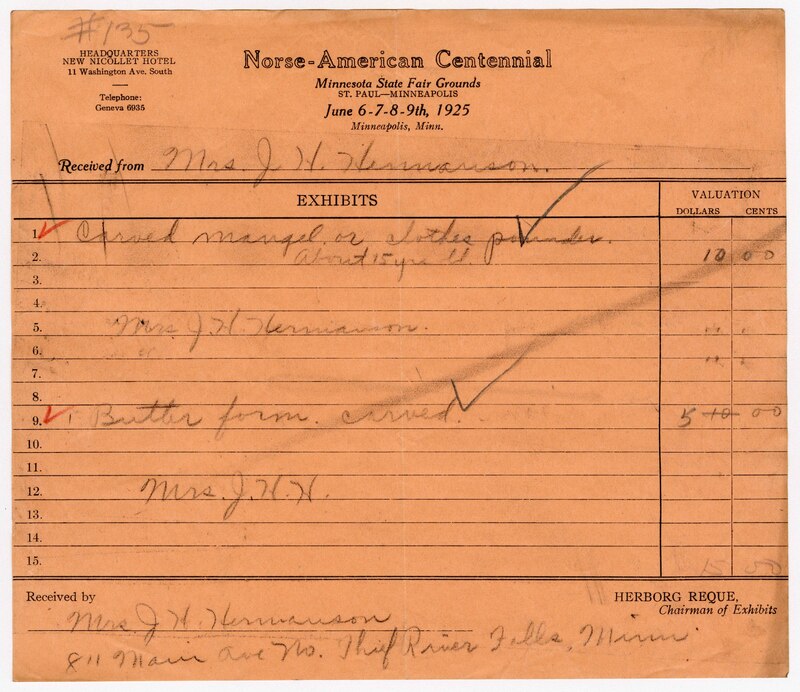 #135
HEADQUARTERS
NEW NICOLLET HOTEL
11 Washington Ave. South
Telephone:
Geneva 6935
Norse-American Centennial
Minnesota State Fair Grounds
ST. PAUL—MINNEAPOLIS
June 6-7-8-9th, 1925
Minneapolis, Minn.
Received from Mrs. J. H. Hermanson.
EXHIBITS VALUATION
DOLLARS CENTS
1. Carved mangel or clothes pounder.
2. About 15 yrs 10 00
3.
4.
5. Mrs J. H. Hermanson. " "
6. " "
7.
8.
9. 1 Butter form. carved. 5 10 00
10.
11.
12. Mrs. J. H. H.
13.
14.
15. 15 00
Received by
HERBORG REQUE,
Chairman of Exhibits
Mrs J. H. Hermanson
811 Main Ave No. Thief River Falls, Minn